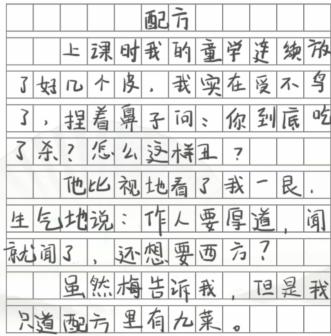 配方
上课时我的童学连续放
了好几个皮，我实在受不鸟
了，捏着鼻子问：你到底吃
了杀？怎么这样丑？
他比视地看了我一艮，
生气地说：作人要厚道，闻
就闻了，还想要西方？
虽然梅告诉我，但是我
只道配方里有九菜。